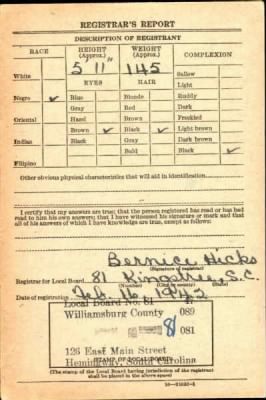 REGISTRAR'S REPORT
DESCRIPTION OF REGISTRANT
RACE HEIGHT (Approx.) WEIGHT (Approx.) COMPLEXION
5' 11" 145
White Sallow
EYES HAIR Light
Negro ✓ Blue Blonde Ruddy
Gray Red Dark
Oriental Hazel Brown Freckled
Brown ✓ Black ✓ Light brown
Indian Black Gray Dark brown
Bald Black ✓
Filipino
Other obvious physical characteristics that will aid in identification
I certify that my answers are true; that the person registered has read or has had
read to him his own answers; that I have witnessed his signature or mark and that
all of his answers of which I have knowledge are true, except as follows:
Bernice Hicks
(Signature of registrar)
Registrar for Local Board 81 Kingstree, S.C.
(Number) (City or county) (State)
Date of registration Feb. 16 1942
Local Board No. 81
Williamsburg County 089
81 081
126 East Main Street
Hemingway, South Carolina
(STAMP OF LOCAL BOARD)
(The stamp of the Local Board having jurisdiction of the registrant
shall be placed in the above space.)